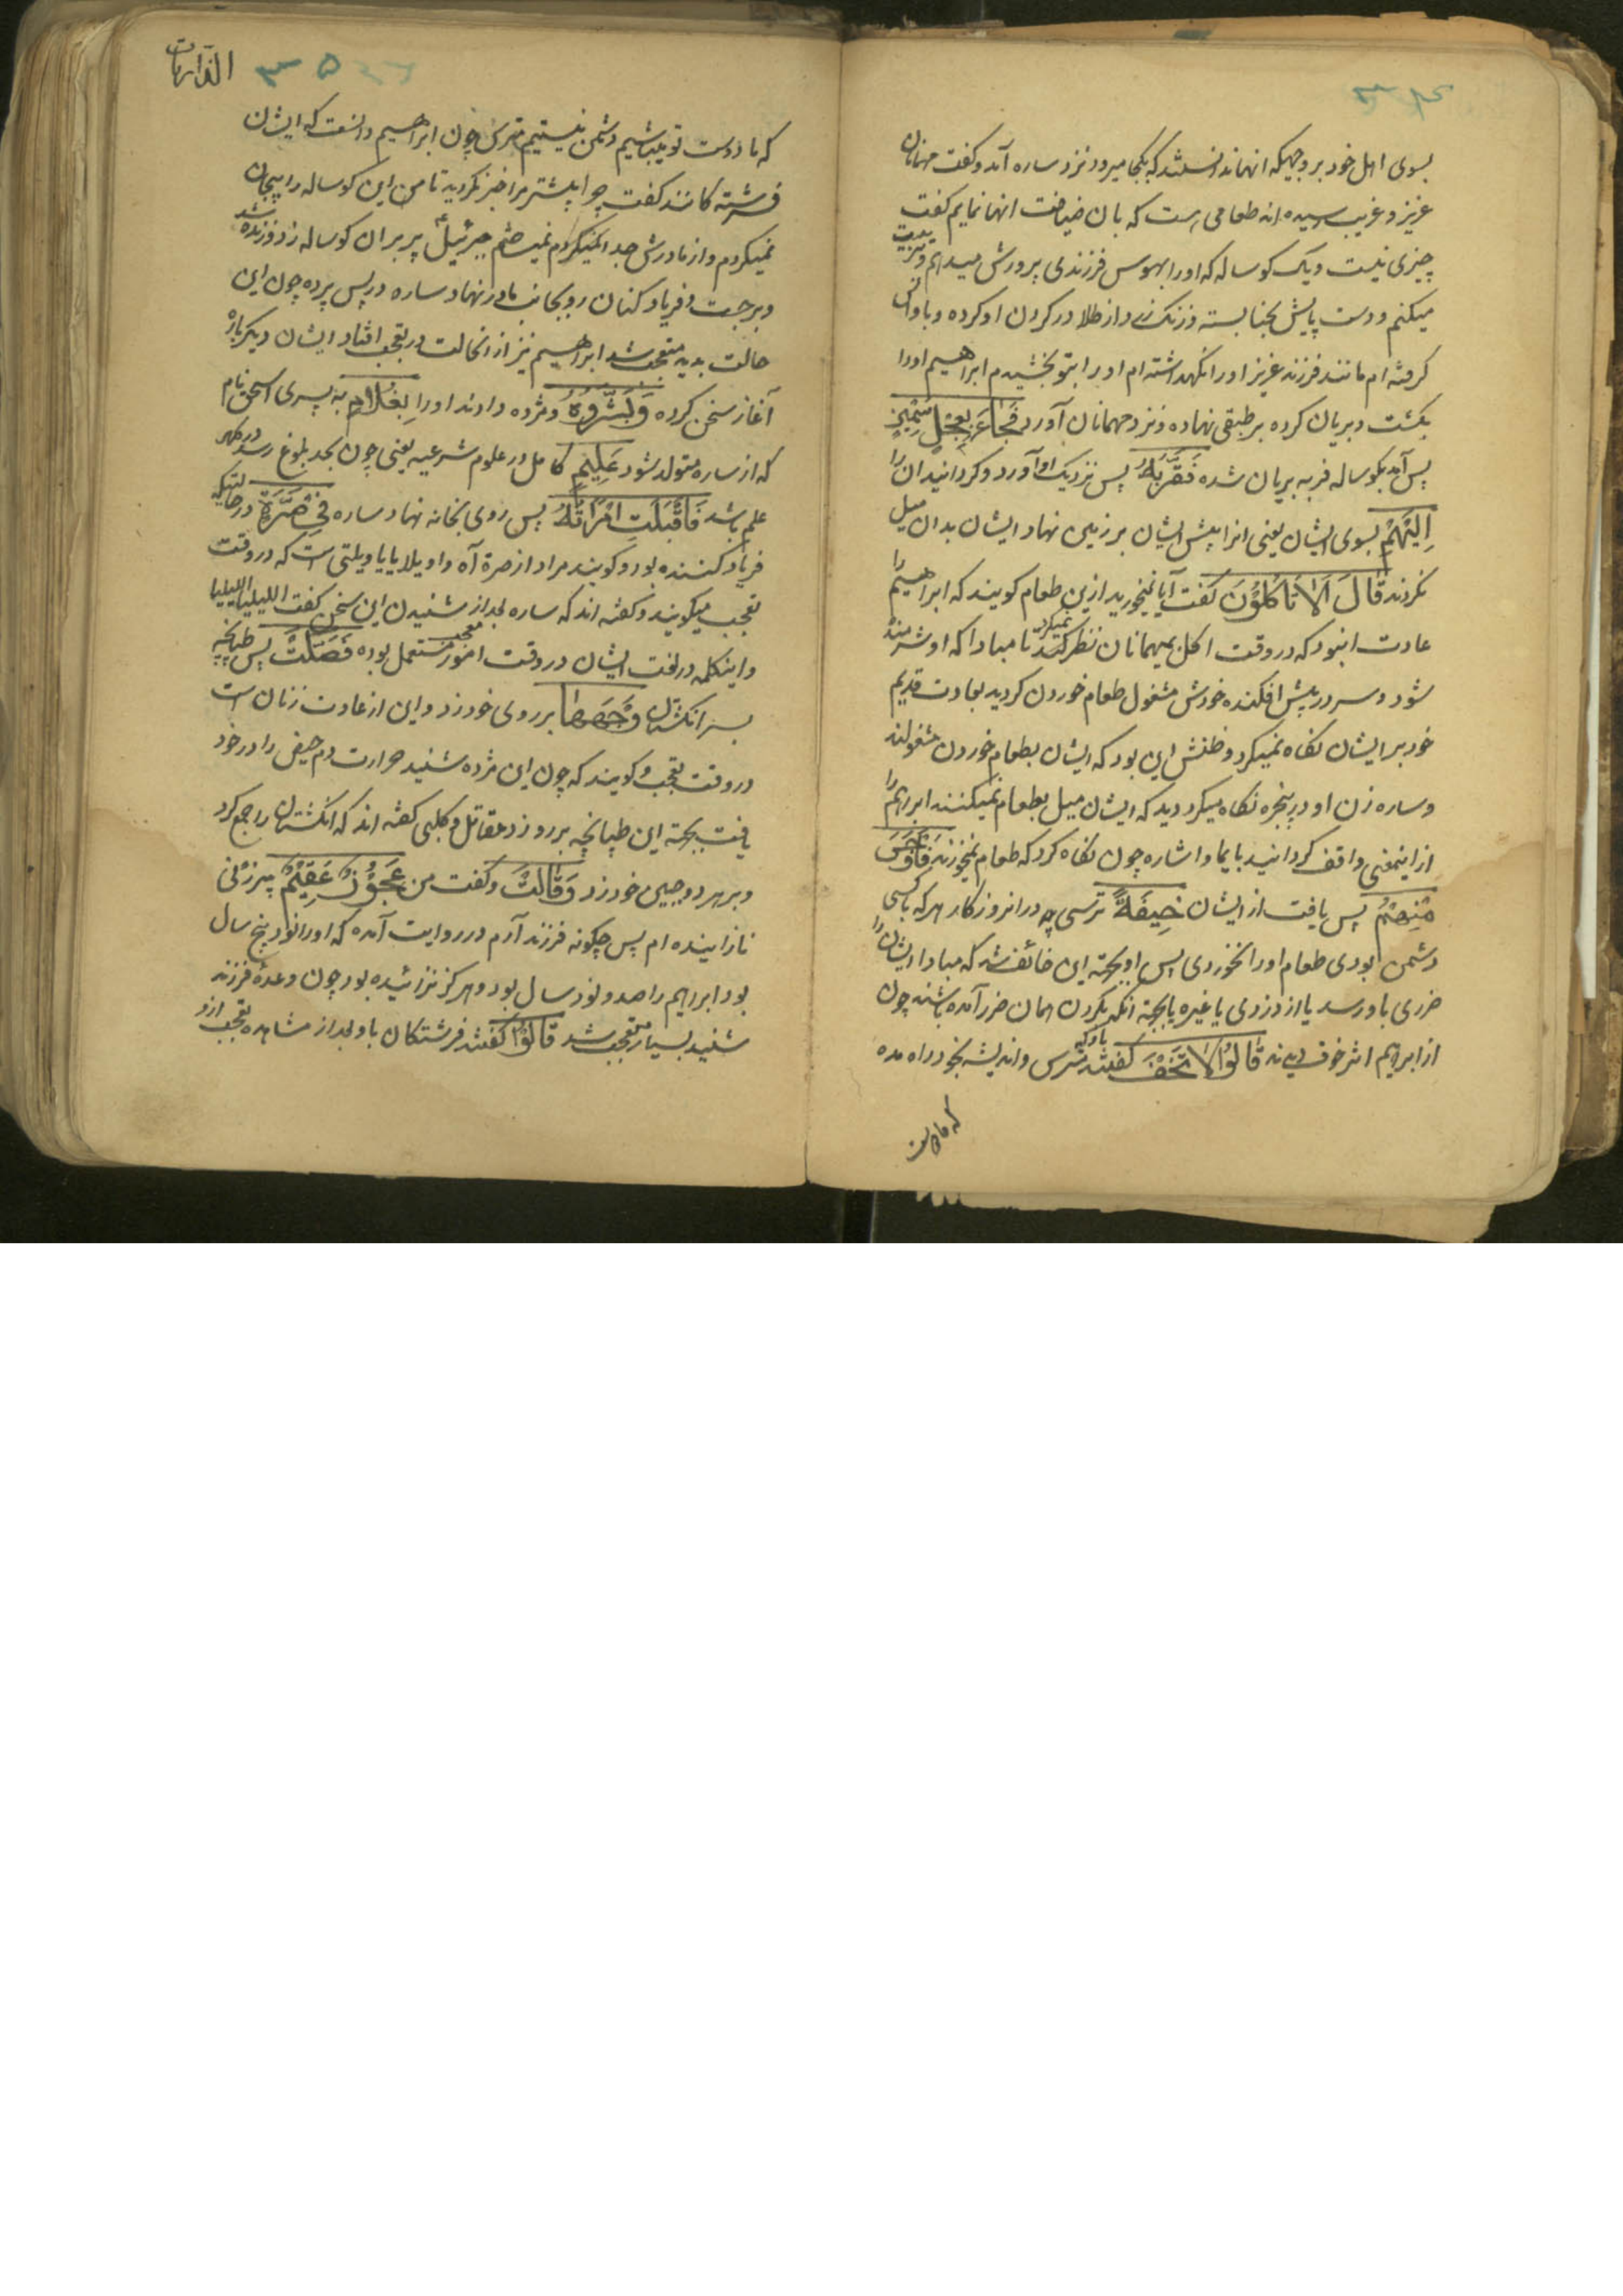 ۳۴
بسوی اهل خود بر وجهیکه انها ندانستند که بکجا میرود نزد ساره آمد و کفت مهمانان
عزیز و غریب رسیده اند طعامی هست که بان ضیافت انها نمایم کفت
چیزی نیست و یک کوساله که اورا بهوس فرزندی پرورش میدهم و تربیت
میکنم و دست و پایش بحنا بسته و زنک از طلا در کردن او کرده و باو انس
کرفته ام مانند فرزند عزیز اورا نکهداشته ام اورا بتو بخشیدم ابراهیم اورا
بکشت و بریان کرده بر طبقی نهاده و نزد مهمانان آورد فَجَاءَ بِعِجْلٍ سَمِینٍ
پس آمد بکوساله فربه بریان شده فَقَرَّبَهُ پس نزدیک آورد و کردانید ان را
اِلَیْهِمْ بسوی ایشان یعنی انرا پیش ایشان بر زمین نهاد ایشان بدان میل
نکردند قَالَ اَلَا تَاْکُلُوْنَ کفت آیا نمیخورید ازین طعام کویند که ابراهیم را
عادت این بود که در وقت اکل بمیهمانان نظر نمیکرد تا مبادا که او شرمنده
شود و سر در پیش افکنده خودش مشغول طعام خوردن کردید بعادت قدیم
خود بر ایشان نکاه نمیکرد و ظنش این بود که ایشان بطعام خوردن مشغولند
و ساره زن او در پنجره نکاه میکرد دید که ایشان میل بطعام نمیکنند ابراهیم را
از اینمعنی واقف کردانید بایما و اشاره چون نکاه کرد که طعام نمیخورند فَاَوْجَسَ
مِنْهُمْ پس یافت از ایشان خِیفَةً ترسی چه در انروزکار هر که با کسی
دشمن بودی طعام اورا نخوردی پس او بجهته این خائف شد که مبادا ایشان را
ضرری باو رسد یا از دزدی یا غیره یا بجهته انکه بکردن همان ضرر آمده باشند چون
از ابراهیم اثر خوف دیدند قَالُوْا لَا تَخَفْ کفتند باو که مترس و اندیشه بخود راه مده
که ما دوست
الذاریات
۳۵
که ما دوست تو میباشیم دشمن نیستیم مترس چون ابراهیم دانست که ایشان
فرشته کانند کفت چرا پیشتر مرا خبر نکردید تا من این کوساله را بیجان
نمیکردم و از مادرش جدا نمیکردم نمیکشتم جبرئیل ع پر بران کوساله زد و زنده شد
و برجست و فریاد کنان رو بجانب مادر نهاد ساره در پس پرده چون این
حالت بدید متعجب شد ابراهیم نیز از انحالت در تعجب افتاد ایشان دیکر باره
آغاز سخن کرده وَبَشَّرُوْهُ و مژده دادند اورا بِغُلَامٍ به پسری اسحق نام
که از ساره متولد شود عَلِیْمٍ کامل در علوم شرعیه یعنی چون بحد بلوغ رسد در هر
علم باشد فَاَقْبَلَتِ امْرَاَتُهُ پس روی بخانه نهاد ساره فِیْ صَرَّةٍ در حالتیکه
فریاد کننده بود و کویند مراد از صرة آه و اویلا یا یا ویلتی است که در وقت
تعجب میکویند و کفته اند که ساره بعد از شنیدن این سخن کفت
و اینکلمه در لغت ایشان در وقت امور معجب مستعمل بوده فَصَکَّتْ پس طپانچه
بسر انکشتان وَجْهَهَا بر روی خود زد و این از عادت زنان است
در وقت تعجب و کویند که چون این مژده شنید حرارت دم حیض را در خود
یافت بجهته این طپانچه بر رو زد مقاتل و کلبی کفته اند که انکشتان را جمع کرد
و بر هر دو جبین خود زد وَقَالَتْ و کفت من عَجُوْزٌ عَقِیْمٌ پیرزنی
نازاینده ام پس چکونه فرزند آرم در روایت آمده که اورا نود پنج سال
بود ابراهیم را صد و نود سال بود و هرکز نزائیده بود چون وعدهٔ فرزند
شنید بسیار متعجب شد قَالُوْا کفتند فرشتکان باو بعد از مشاهده تعجب ازو